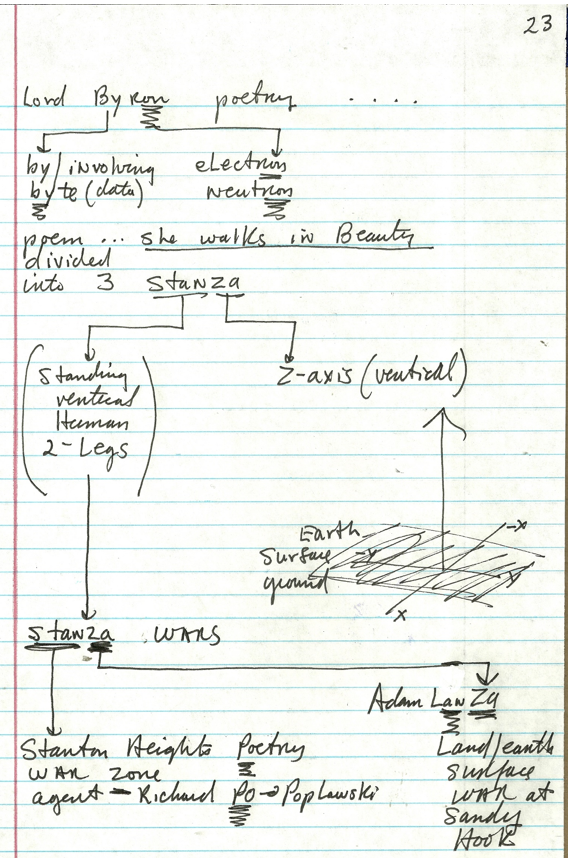 23
Lord Byron poetry ....
by/involving electron
byte (data) neutron
poem ... she walks in Beauty
divided
into 3 stanza
Standing
vertical
Human
2-Legs
Z-axis (vertical)
-x
Earth
Surface -Y
ground Y
x
stanza WARS
Adam LanZa
Stanton Heights Poetry
WAR zone
agent - Richard PO → Poplawski
Land/earth
surface
WAR at
Sandy
Hook